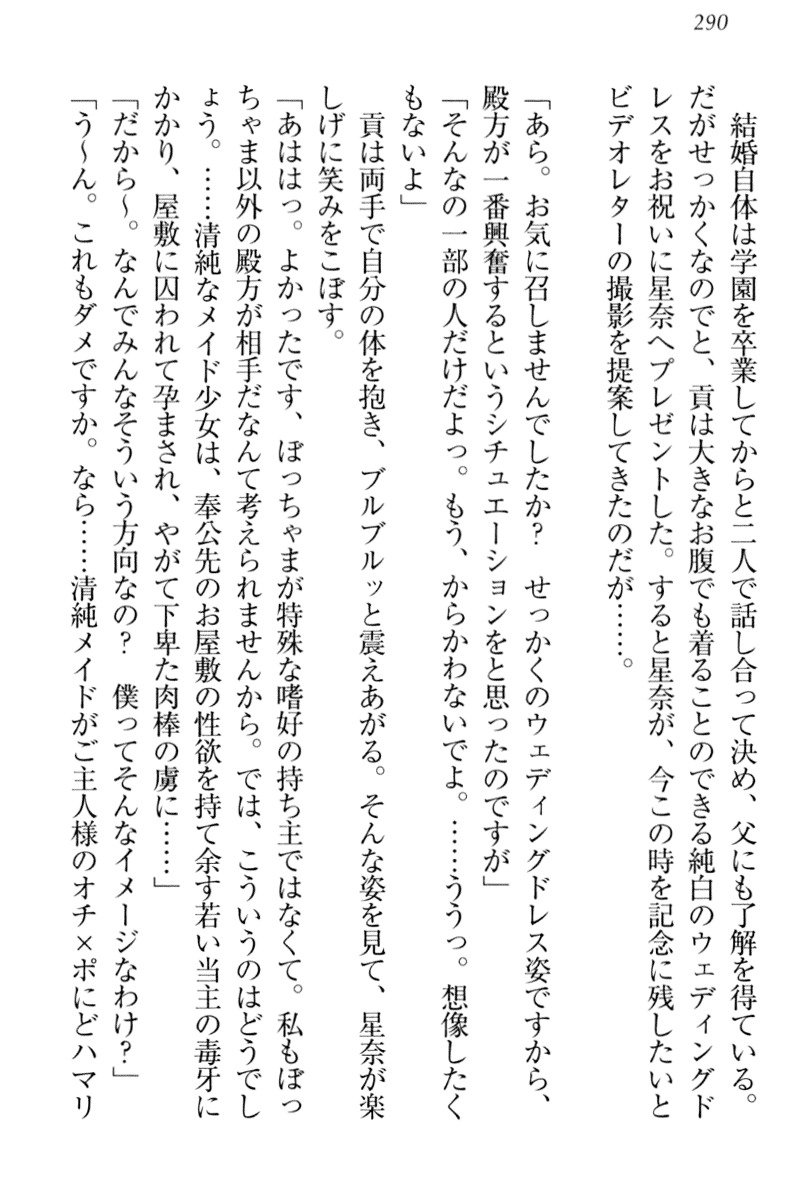 290
結婚自体は学園を卒業してからと二人で話し合って決め、父にも了解を得ている。
だがせっかくなのでと、貢は大きなお腹でも着ることのできる純白のウェディングド
レスをお祝いに星奈へプレゼントした。すると星奈が、今この時を記念に残したいと
ビデオレターの撮影を提案してきたのだが……。
「あら。お気に召しませんでしたか？　せっかくのウェディングドレス姿ですから、
殿方が一番興奮するというシチュエーションをと思ったのですが」
「そんなの一部の人だけだよっ。もう、からかわないでよ。……ううっ。想像したく
もないよ」
貢は両手で自分の体を抱き、ブルブルッと震えあがる。そんな姿を見て、星奈が楽
しげに笑みをこぼす。
「あははっ。よかったです、ぼっちゃまが特殊な嗜好の持ち主ではなくて。私もぼっ
ちゃま以外の殿方が相手だなんて考えられませんから。では、こういうのはどうでし
ょう。……清純なメイド少女は、奉公先のお屋敷の性欲を持て余す若い当主の毒牙に
かかり、屋敷に囚われて孕まされ、やがて下卑た肉棒の虜に……」
「だから～。なんでみんなそういう方向なの？　僕ってそんなイメージなわけ？」
「う～ん。これもダメですか。なら……清純メイドがご主人様のオチ×ポにどハマリ